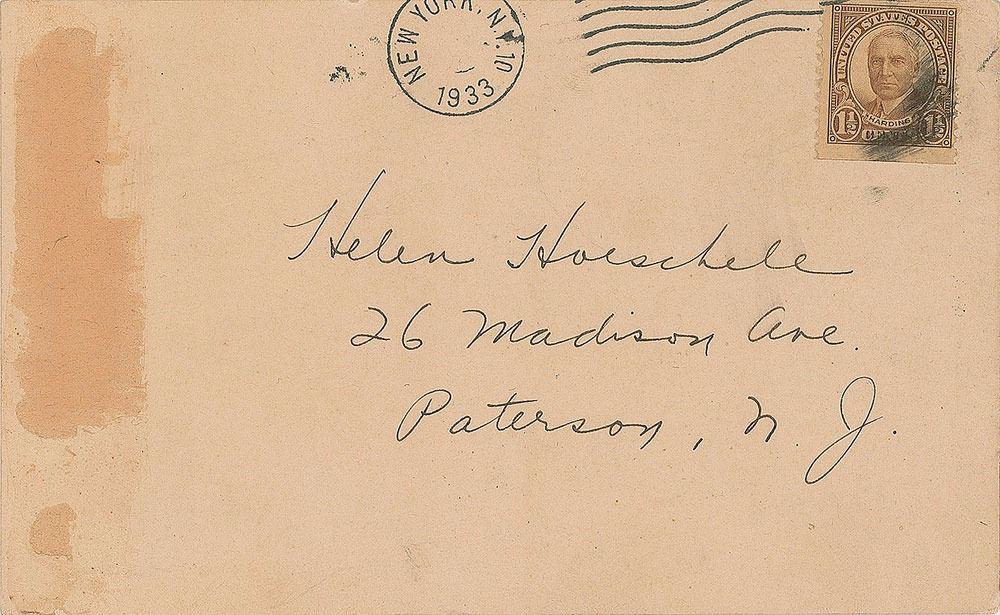 NEW YORK, N.Y. 10
1933
UNITED STATES POSTAGE
HARDING
1½ 1½
CENTS
Helen Hoeschele
26 Madison Ave.
Paterson, N. J.